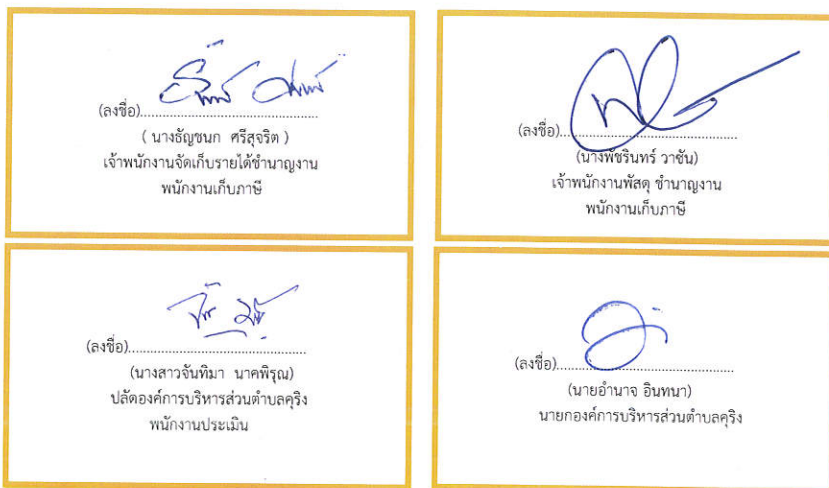 (ลงชื่อ)..............................................
( นางธัญชนก ศรีสุจริต )
เจ้าพนักงานจัดเก็บรายได้ชำนาญงาน
พนักงานเก็บภาษี
(ลงชื่อ)..............................................
(นางพัชรินทร์ วาชัน)
เจ้าพนักงานพัสดุ ชำนาญงาน
พนักงานเก็บภาษี
(ลงชื่อ)..............................................
(นางสาวจันทิมา นาคพิรุณ)
ปลัดองค์การบริหารส่วนตำบลคุริง
พนักงานประเมิน
(ลงชื่อ)..............................................
(นายอำนาจ อินทนา)
นายกองค์การบริหารส่วนตำบลคุริง